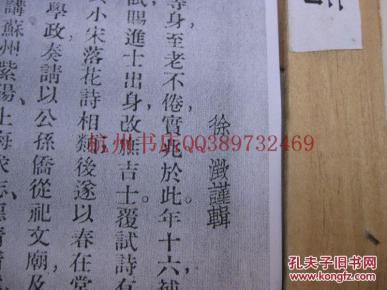 徐澂謹輯
等身至老不倦實兆於此年十六補
試賜進士出身改庶吉士覆試詩有
小宋落花詩相類後遂以春在堂
學政奏請以公孫僑從祀文廟及
講蘇州紫陽上海求志
杭州书店QQ389732469
孔夫子旧书网